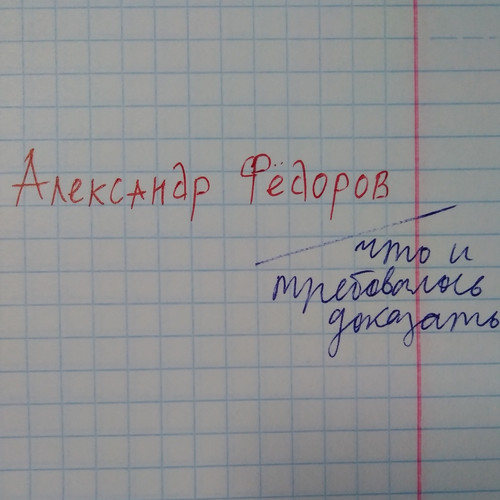 Александр Фёдоров
что и
требовалось
доказать